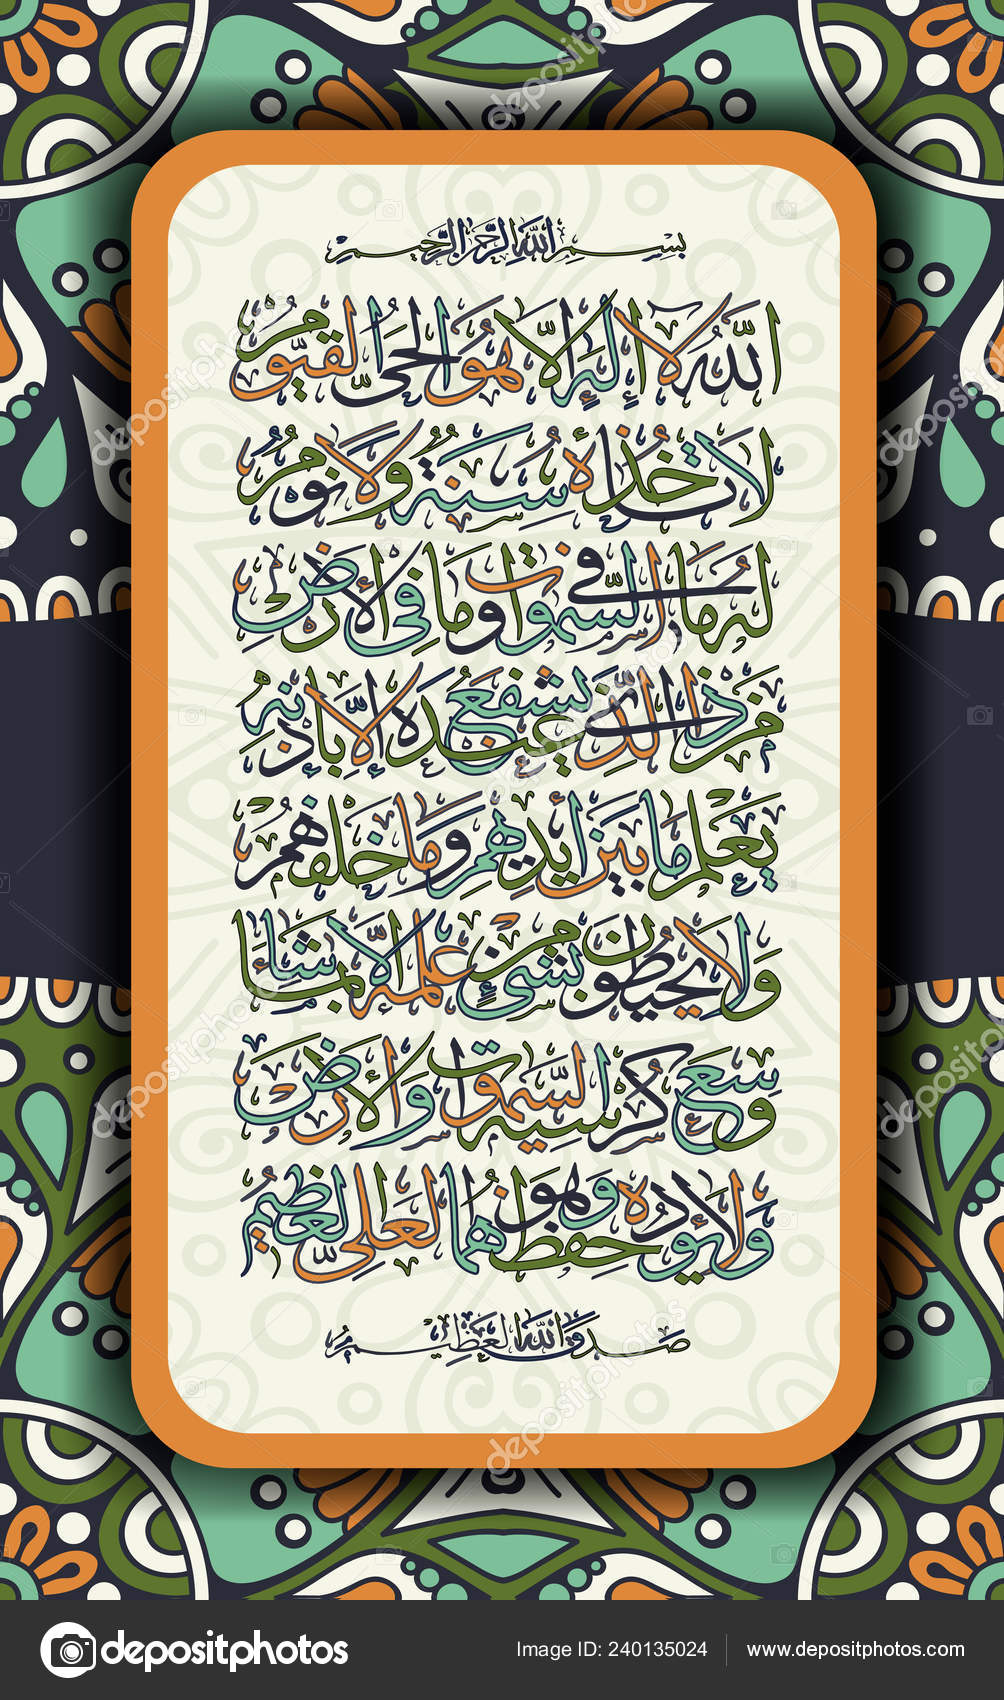 بسم الله الرحمن الرحيم
الله لا إله إلا هو الحي القيوم
لا تأخذه سنة ولا نوم
له ما في السموات وما في الأرض
من ذا الذي يشفع عنده إلا بإذنه
يعلم ما بين أيديهم وما خلفهم
ولا يحيطون بشيء من علمه إلا بما شاء
وسع كرسيه السموات والأرض
ولا يؤده حفظهما وهو العلي العظيم
صدق الله العظيم
depositphotos Image ID: 240135024 www.depositphotos.com